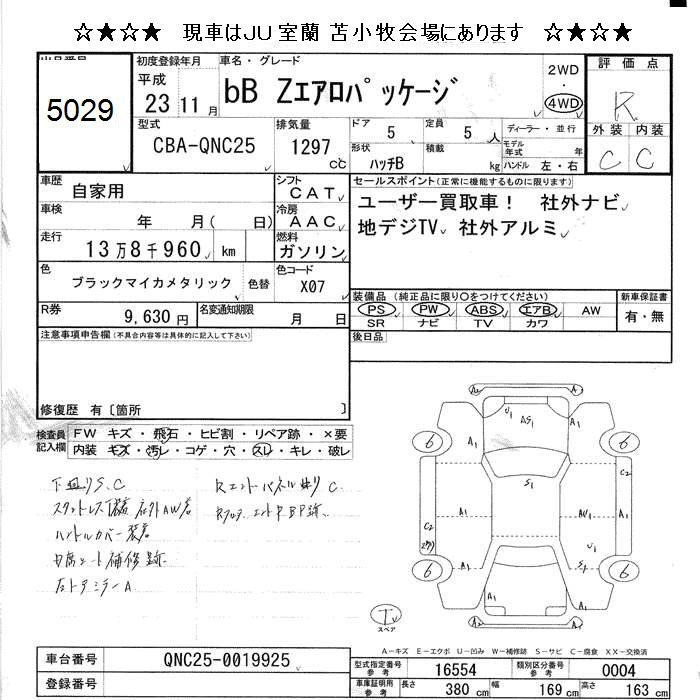 ☆★☆★ 現車はJU室蘭 苫小牧会場にあります ☆★☆★
出品番号
5029
初度登録年月
平成
23年11月
車名・グレード
bB Zエアロパッケージ
2WD
・
4WD
評価点
R
外装 内装
C C
型式
CBA-QNC25
排気量
1297
cc
ドア
5
定員
5 人
形状
ハッチB
積載
kg
ディーラー・並行
モデル年式 年
ハンドル 左・右
車歴
自家用
シフト
CAT
車検
年 月( 日)
冷房
AAC
走行
13万8千960 km
燃料
ガソリン
色
ブラックマイカメタリック
色替
色コード
X07
R券
9,630円
名変通知期限
月 日
セールスポイント(正常に機能するものに限ります)
ユーザー買取車! 社外ナビ
地デジTV 社外アルミ
装備品 (純正品に限り○をつけてください)
PS PW ABS エアB AW
SR ナビ TV カワ
新車保証書
有・無
後日品
注意事項申告欄(不具合内容等は具体的に記入して下さい)
修復歴 有〔箇所 〕
検査員記入欄
FW キズ・飛石・ヒビ割・リペア跡・×要
内装 キズ・汚レ・コゲ・穴・スレ・キレ・破レ
下廻りS.C
ハンドルカバー装着
A1
U1
A1
A1
A1
S1
6
6
C2
A1
C2
A1
AU1
A1
U1
6
6
A1
S1
A1
A1
A1
T
スペア
A-キズ E-エクボ U-凹み W-補修跡 S-サビ C-腐食 XX-交換済
車台番号
QNC25-0019925
登録番号
型式指定番号
参考
16554
類別区分番号
参考
0004
車庫証明用
参考
長さ 380 cm
幅 169 cm
高さ 163 cm